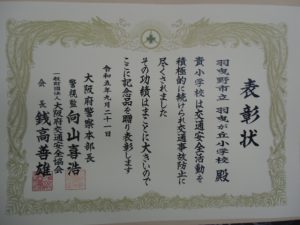 表彰状
羽曳野市立 羽曳が丘小学校 殿
貴小学校は交通安全活動を
積極的に続けられ交通事故防止に
尽くされました
その功績はまことに大きいので
ここに記念品を贈り表彰します
令和五年九月二十一日
大阪府警察本部長
警視監 向山喜浩
一般財団法人 大阪府交通安全協会
会長 錢高善雄